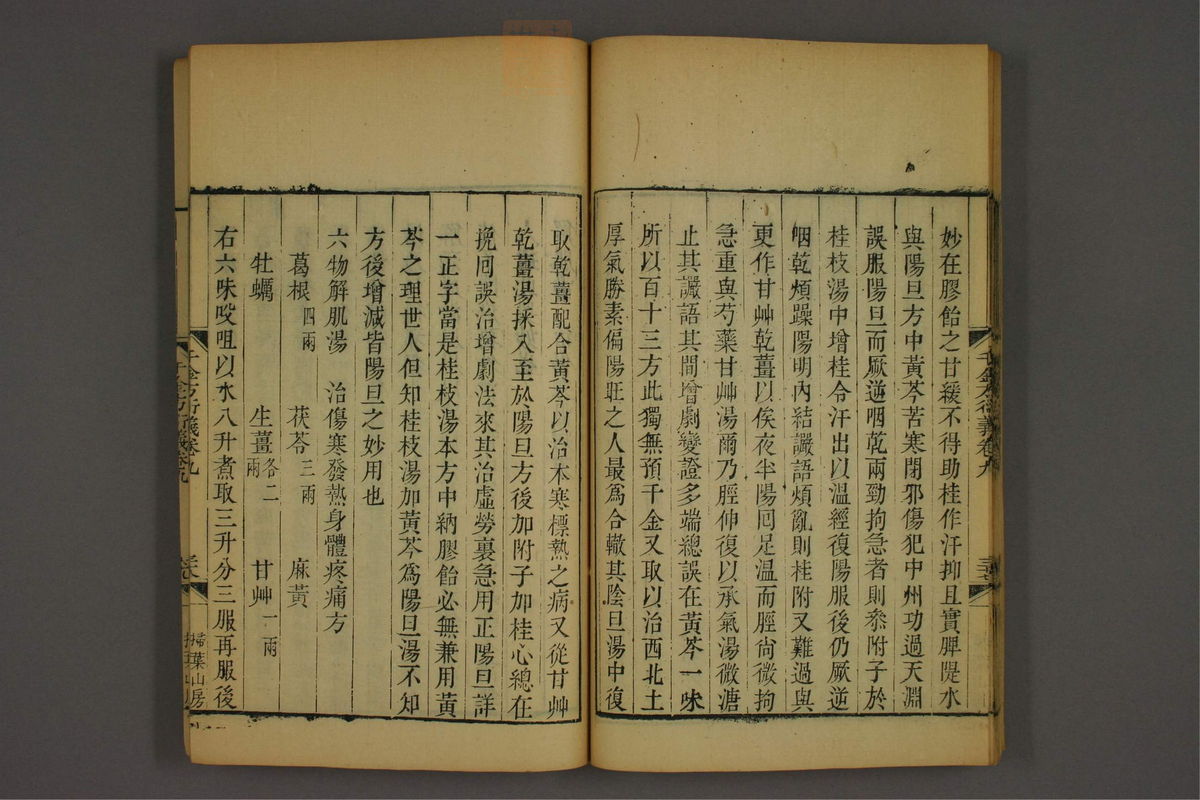 妙在膠飴之甘緩不得助桂作汗抑且實脾隄水
與陽旦方中黃芩苦寒閉邪傷犯中州功過天淵
誤服陽旦而厥逆咽乾兩勁拘急者則參附子於
桂枝湯中增桂令汗出以溫經復陽服後仍厥逆
咽乾煩躁陽明內結讝語煩亂則桂附又難過與
更作甘艸乾薑以俟夜半陽囘足溫而脛尙微拘
急重與芍藥甘艸湯爾乃脛伸復以承氣湯微溏
止其讝語其間增劇變證多端總誤在黃芩一味
所以百十三方此獨無預千金又取以治西北土
厚氣勝素偏陽旺之人最爲合轍其陰旦湯中復
取乾薑配合黃芩以治本寒標熱之病又從甘艸
乾薑湯採入至於陽旦方後加附子加桂心總在
挽囘誤治增劇法來其治虛勞裏急用正陽旦詳
一正字當是桂枝湯本方中納膠飴必無兼用黃
芩之理世人但知桂枝湯加黃芩爲陽旦湯不知
方後增減皆陽旦之妙用也
六物解肌湯 治傷寒發熱身體疼痛方
葛根四兩 茯苓三兩 麻黃
牡蠣 生薑各二兩 甘艸一兩
右六味㕮咀以水八升煮取三升分三服再服後
千金方衍義卷九
掃葉山房